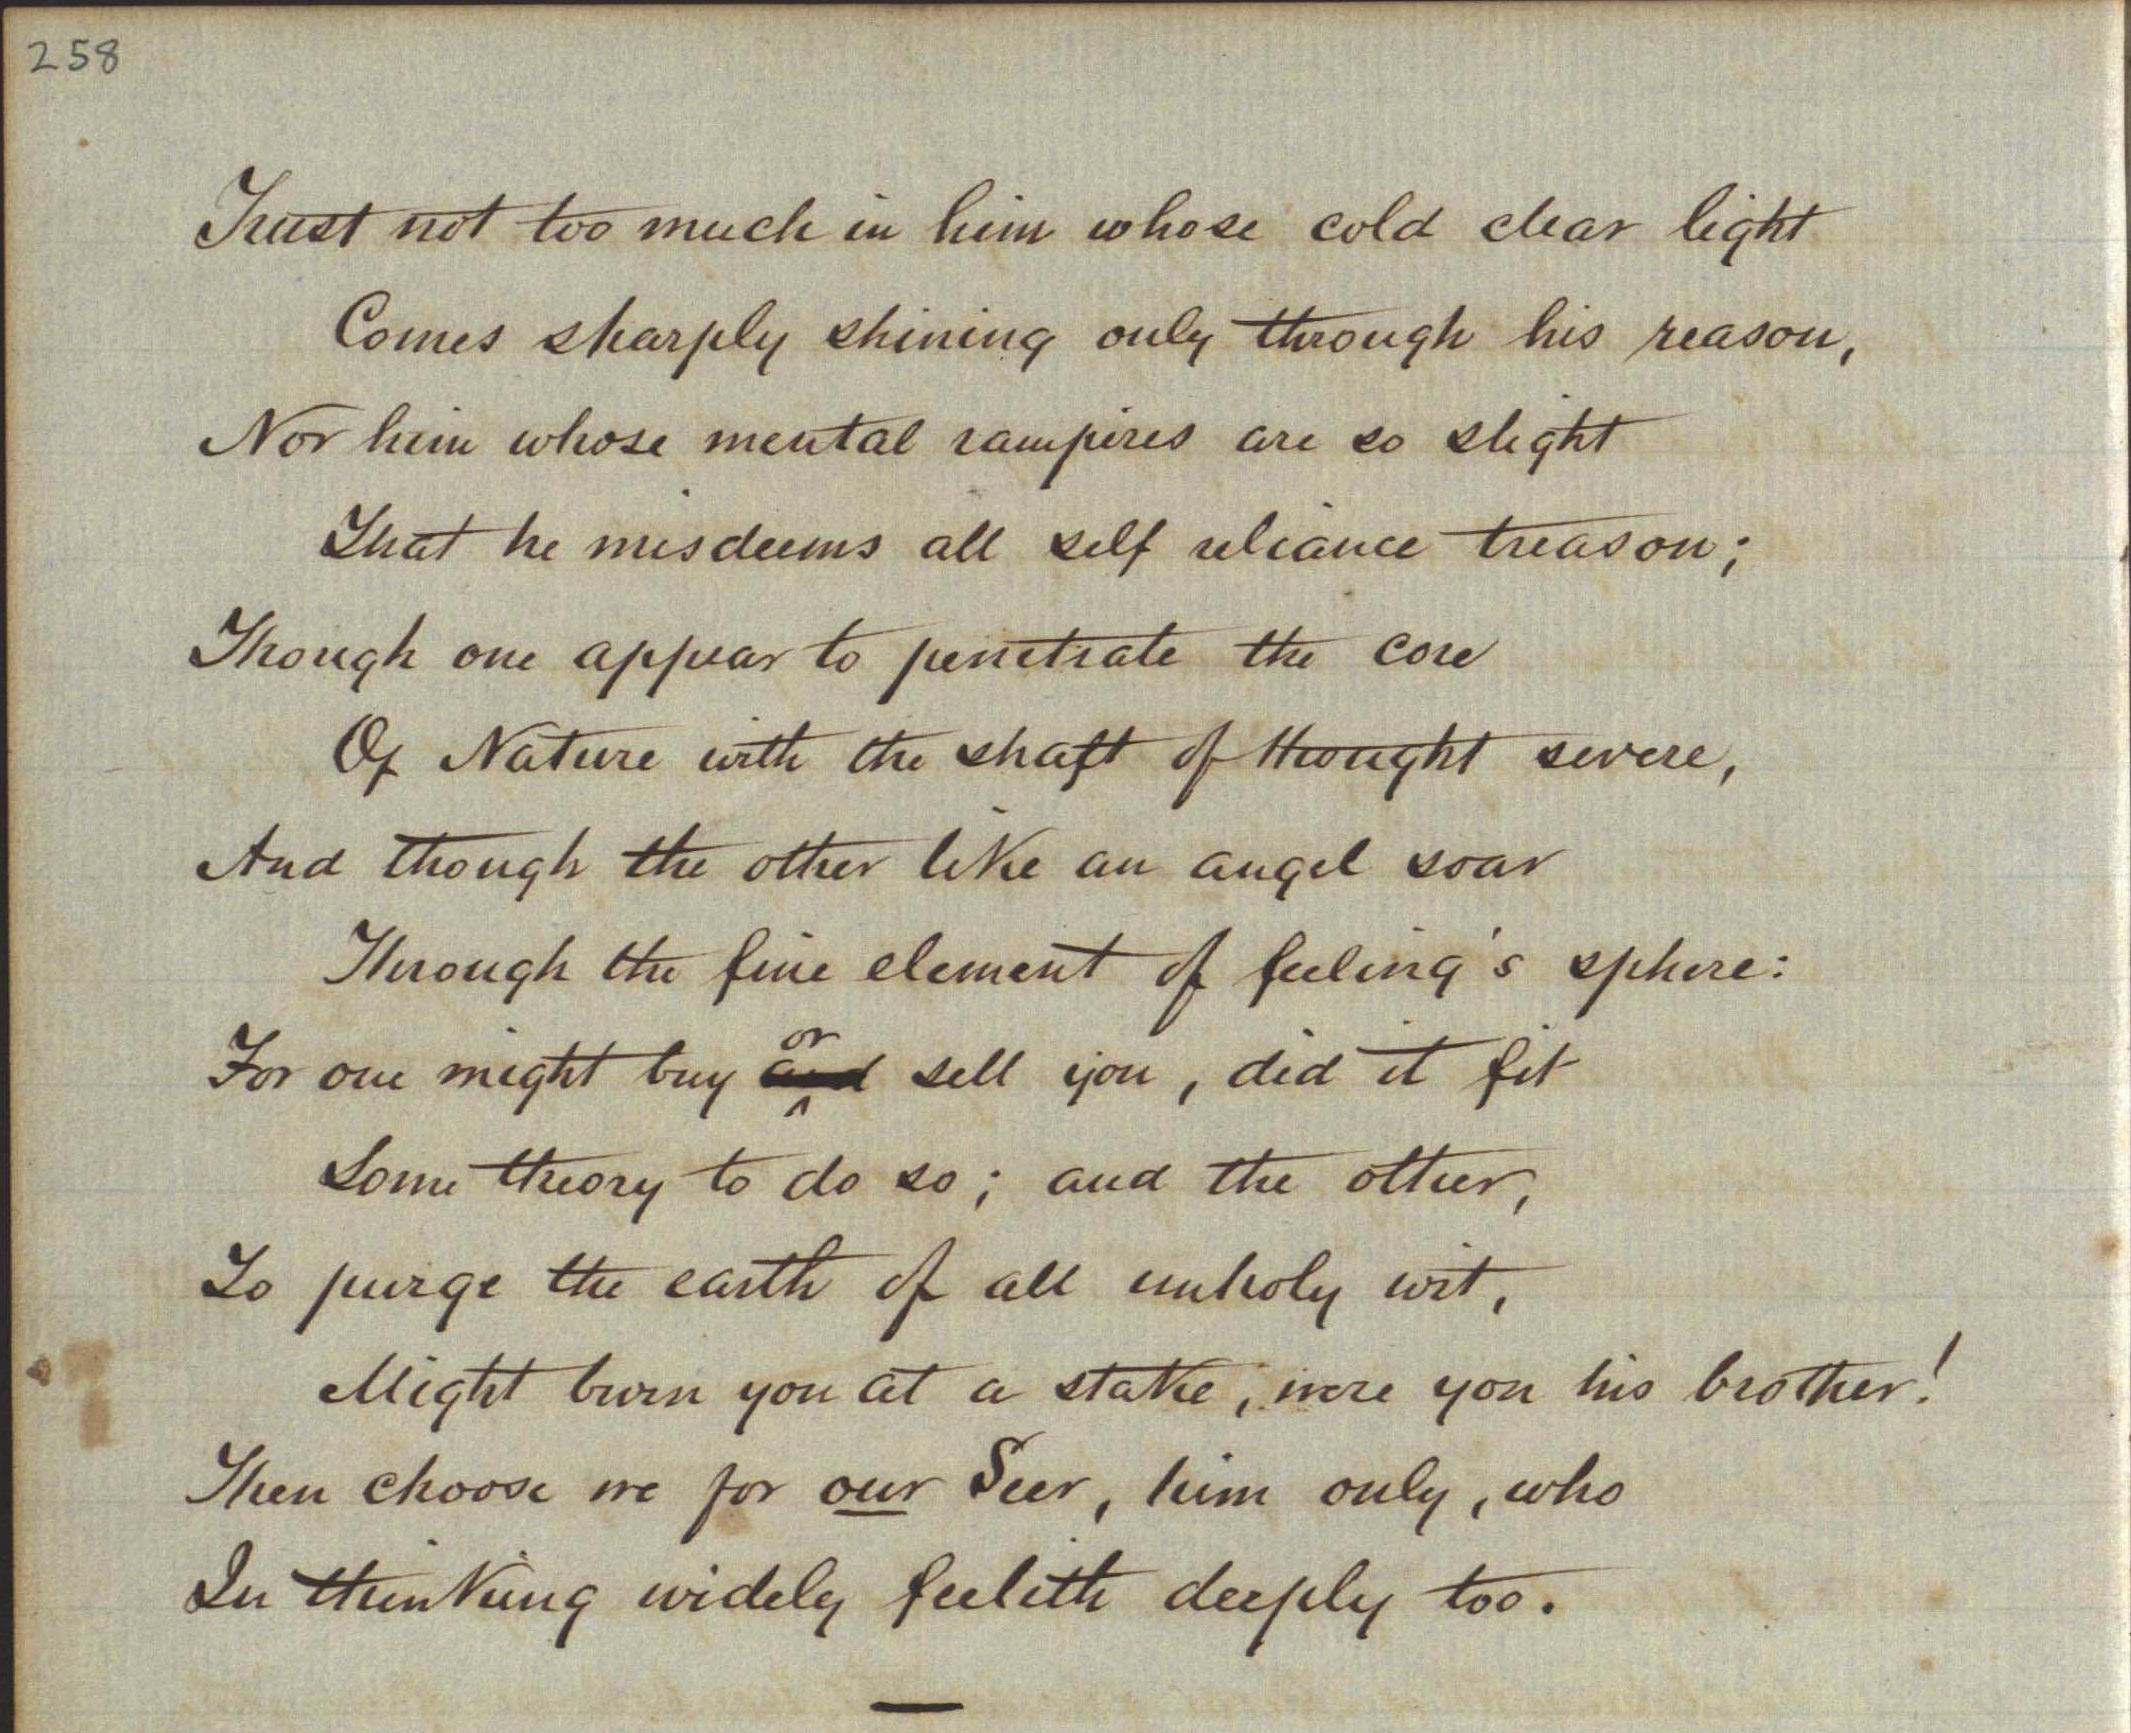 258
Trust not too much in him whose cold clear light
Comes sharply shining only through his reason,
Nor him whose mental rampires are so slight
That he misdeems all self reliance treason;
Though one appear to penetrate the core
Of Nature with the shaft of thought severe,
And though the other like an angel soar
Through the fine element of feeling's sphere:
or
For one might buy and sell you, did it fit
Some theory to do so; and the other,
To purge the earth of all unholy wit,
Might burn you at a stake, were you his brother!
Then choose we for our Seer, him only, who
In thinking widely feeleth deeply too.